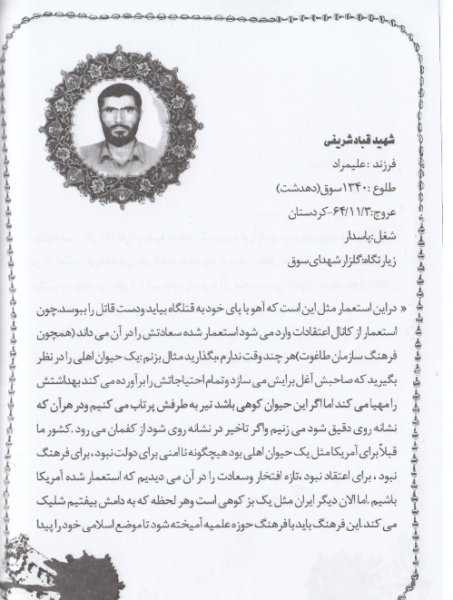 شهید قباد شریفی
فرزند : علیمراد
طلوع : ۱۳۴۰سوق(دهدشت)
عروج:۶۴/۱۱/۳-کردستان
شغل:پاسدار
زیارتگاه:گلزار شهدای سوق
« دراین استعمار مثل این است که آهو با پای خود به قتلگاه بیاید ودست قاتل را ببوسد،چون
استعمار از کانال اعتقادات وارد می شود استعمار شده سعادتش را در آن می داند (همچون
فرهنگ سازمان طاغوت)هر چند وقت ندارم ،بگذارید مثال بزنم:یک حیوان اهلی را در نظر
بگیرید که صاحبش آغل برایش می سازد وتمام احتیاجاتش را برآورده می کند بهداشتش
را مهیا می کند اما اگر این حیوان کوهی باشد تیر به طرفش پرتاب می کنیم ودر هر آن که
نشانه روی دقیق شود می زنیم واگر تاخیر در نشانه روی شود از کفمان می رود .کشور ما
قبلاً برای آمریکا مثل یک حیوان اهلی بود هیچگونه ناامنی برای دولت نبود ، برای فرهنگ
نبود ، برای اعتقاد نبود ،تازه افتخار وسعادت را در آن می دیدیم که استعمار شده آمریکا
باشیم .اما الان دیگر ایران مثل یک بز کوهی است وهر لحظه که به دامش بیفتیم شلیک
می کند.این فرهنگ باید با فرهنگ حوزه علمیه آمیخته شود تا موضع اسلامی خود را پیدا